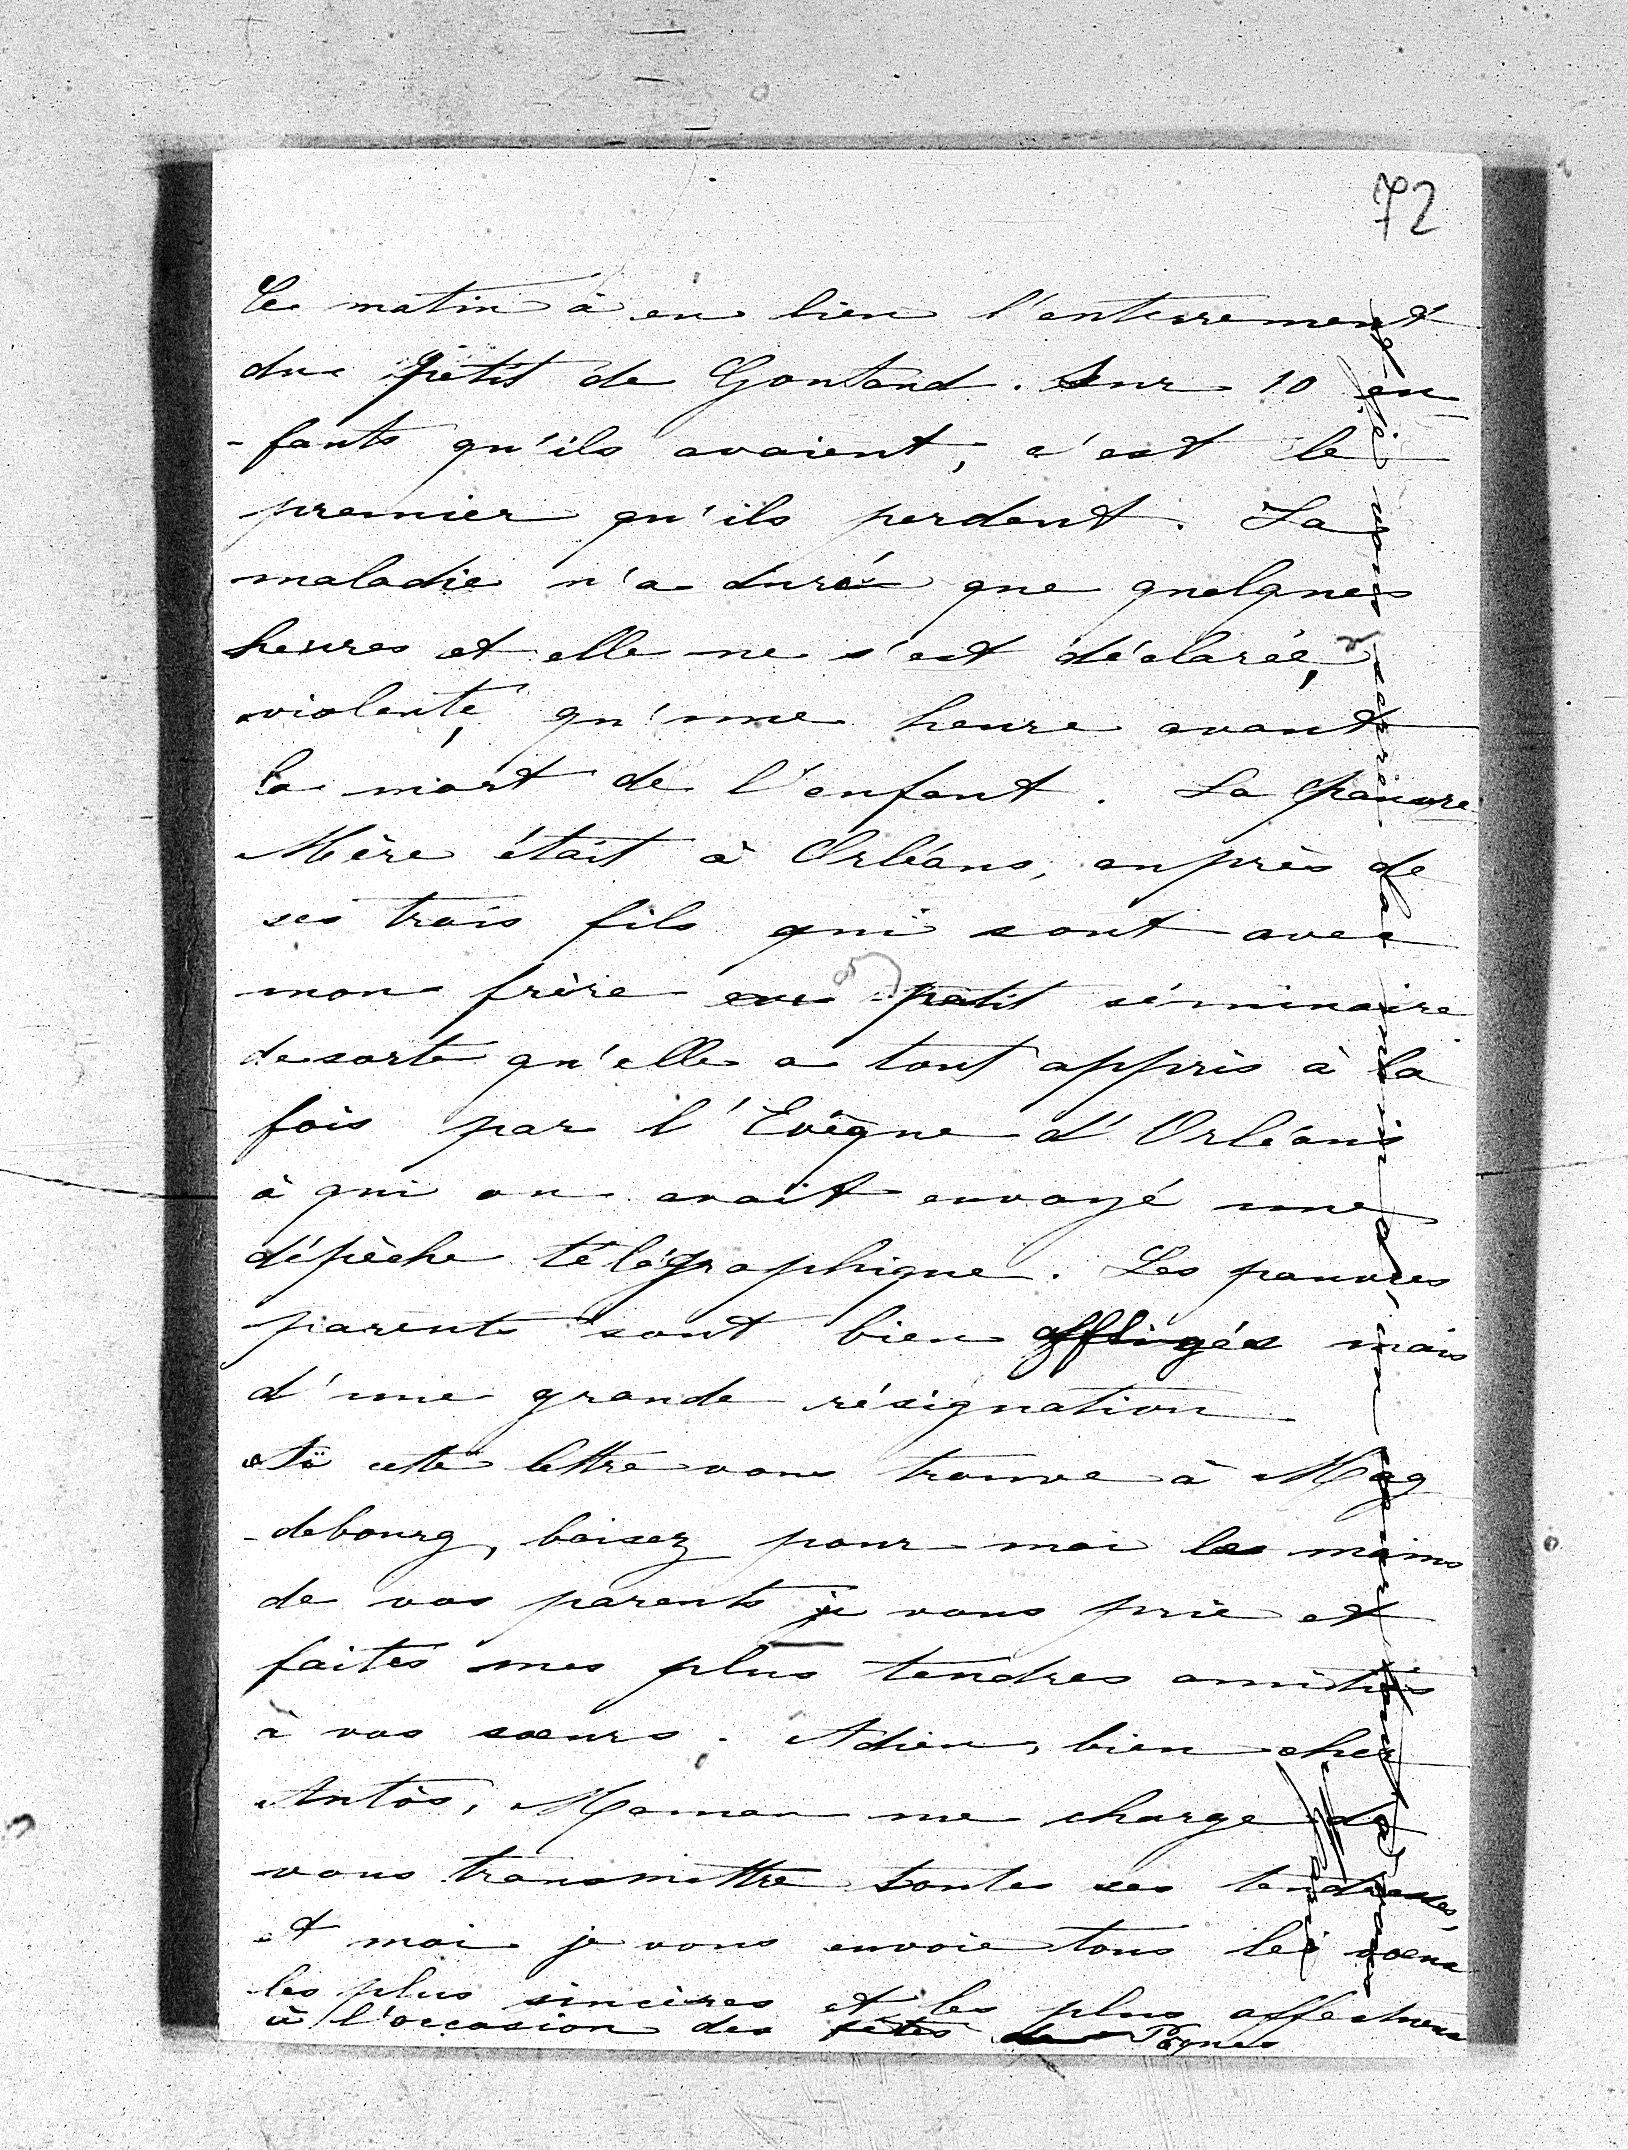 72
Ce matin à eu lieu l'enterrement
du petit de Gontaud. Sur 10 en
-fants qu'ils avaient, c'est le
premier qu'ils perdent. La
maladie n'a duré que quelques
heures et elle ne s'est déclarée,
violente, qu'une heure avant
la mort de l'enfant. La pauvre
Mère était à Orléans, auprès de
ses trois fils qui sont avec
mon frère au petit séminaire
de sorte qu'elle a tout appris à la
fois par l'Evêque d'Orléans
à qui on avait envoyé une
dépèche télégraphique. Les pauvres
parents sont bien affligés mais
d'une grande résignation.
Si cette lettre vous trouve à Mag
-debourg, baisez pour moi les mains
de vos parents je vous prie et
faites mes plus tendres amitiés
à vos sœurs. Adieu, bien cher
Antòs, Maman me charge de
vous transmettre toutes ses tendresses,
et moi je vous envoie tous les vœux
les plus sincères et les plus affectueux
à l'occasion des fêtes de Pâques
et je vous serre la main d'un cœur tout à vous
Marie